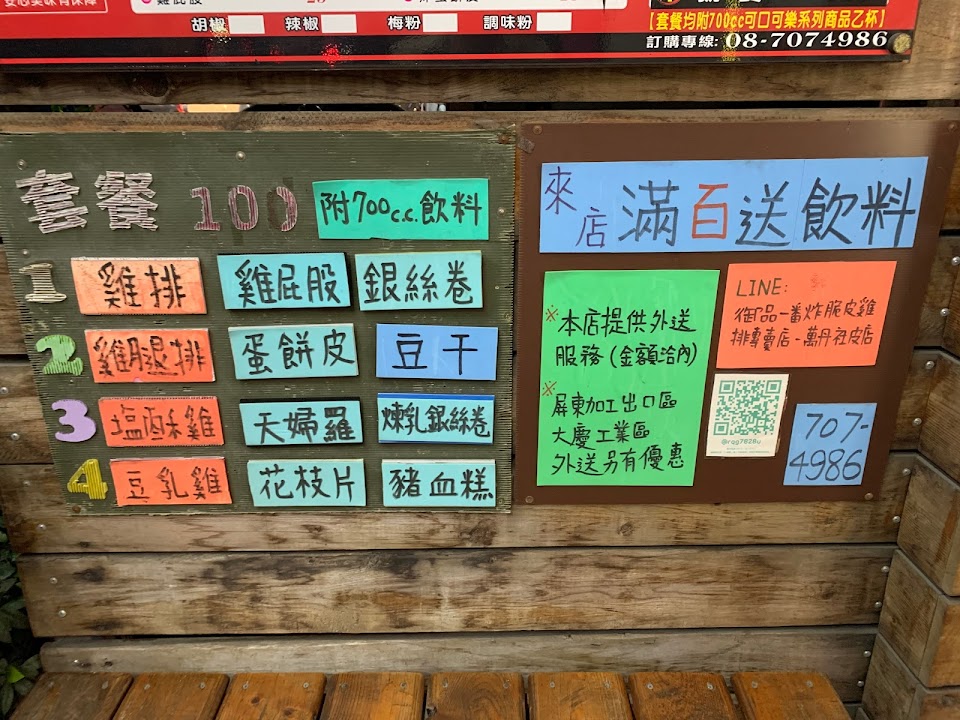 安心美味有保障
雞屁股
胡椒 辣椒 梅粉 調味粉
【套餐均附700cc可口可樂系列商品乙杯】
訂購專線: 08-7074986
套餐 100 附700c.c.飲料
1 雞排 雞屁股 銀絲卷
2 雞腿排 蛋餅皮 豆干
3 塩酥雞 天婦羅 煉乳銀絲卷
4 豆乳雞 花枝片 豬血糕
來店 滿百送飲料
※本店提供外送
服務(金額洽內)
※
屏東加工出口區
大慶工業區
外送另有優惠
LINE:
御品一番炸脆皮雞
排專賣店-萬丹社皮店
@rqg7020u
707-
4986